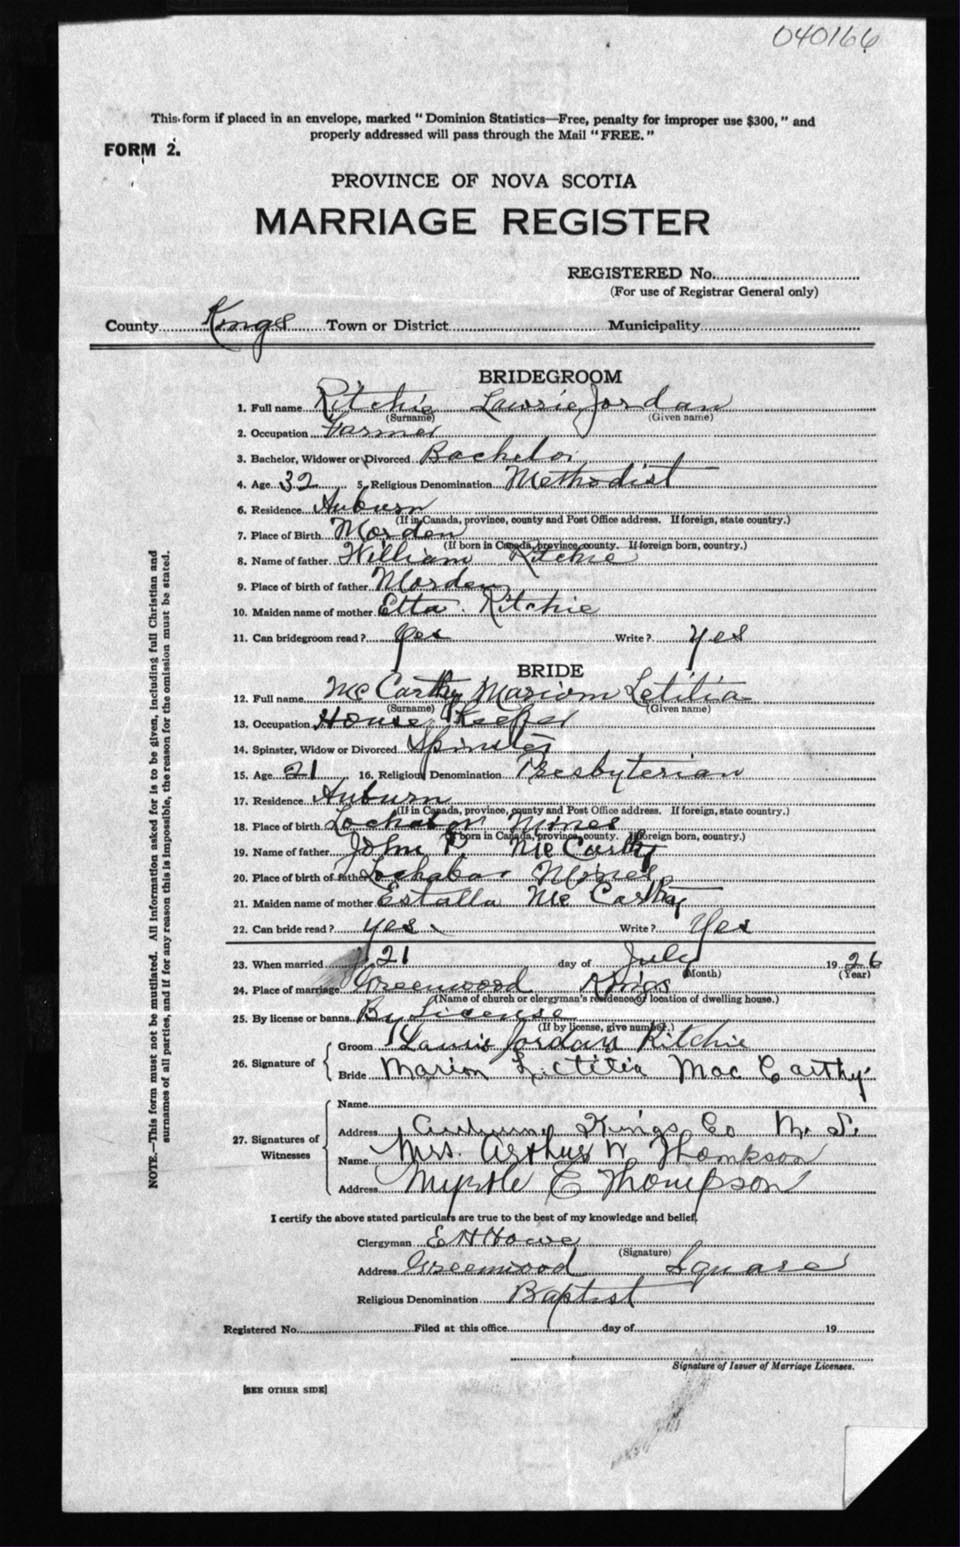 040166
This form if placed in an envelope, marked "Dominion Statistics—Free, penalty for improper use $300," and
properly addressed will pass through the Mail "FREE."
FORM 2.
PROVINCE OF NOVA SCOTIA
MARRIAGE REGISTER
REGISTERED No.
(For use of Registrar General only)
County Kings Town or District Municipality
BRIDEGROOM
1. Full name Ritchie Lawrie Jordan
(Surname) (Given name)
2. Occupation Farmer
3. Bachelor, Widower or Divorced Bachelor
4. Age 32 5. Religious Denomination Methodist
6. Residence Auburn
(If in Canada, province, county and Post Office address. If foreign, state country.)
7. Place of Birth Morden
(If born in Canada, province, county. If foreign born, country.)
8. Name of father William Ritchie
9. Place of birth of father Morden
10. Maiden name of mother Etta Ritchie
11. Can bridegroom read? Yes Write? Yes
BRIDE
12. Full name McCarthy Mariom Letitia
(Surname) (Given name)
13. Occupation House Keeper
14. Spinster, Widow or Divorced Spinster
15. Age 21 16. Religious Denomination Presbyterian
17. Residence Auburn
(If in Canada, province, county and Post Office address. If foreign, state country.)
18. Place of birth Lochabar Mines
(If born in Canada, province, county. If foreign born, country.)
19. Name of father John P McCarthy
20. Place of birth of father Lochabar Mines
21. Maiden name of mother Estalla McCarthy
22. Can bride read? yes Write? Yes
23. When married 21 day of July 1926
(Month) (Year)
24. Place of marriage Greenwood Kings
(Name of church or clergyman's residence or location of dwelling house.)
25. By license or banns By License
(If by license, give number.)
26. Signature of
Groom Lauris Jordan Ritchie
Bride Marion Lætitia MacCarthy
27. Signatures of Witnesses
Name
Address Auburn, Kings Co N. S.
Name Mrs. Arthur W Thompson
Address Myrtle E Thompson
I certify the above stated particulars are true to the best of my knowledge and belief,
Clergyman E H Howe
(Signature)
Address Greenwood Square
Religious Denomination Baptist
Registered No. Filed at this office day of 19
Signature of Issuer of Marriage Licenses.
[SEE OTHER SIDE]
NOTE.—This form must not be mutilated. All information asked for is to be given, including full Christian and
surnames of all parties, and if for any reason this is impossible, the reason for the omission must be stated.